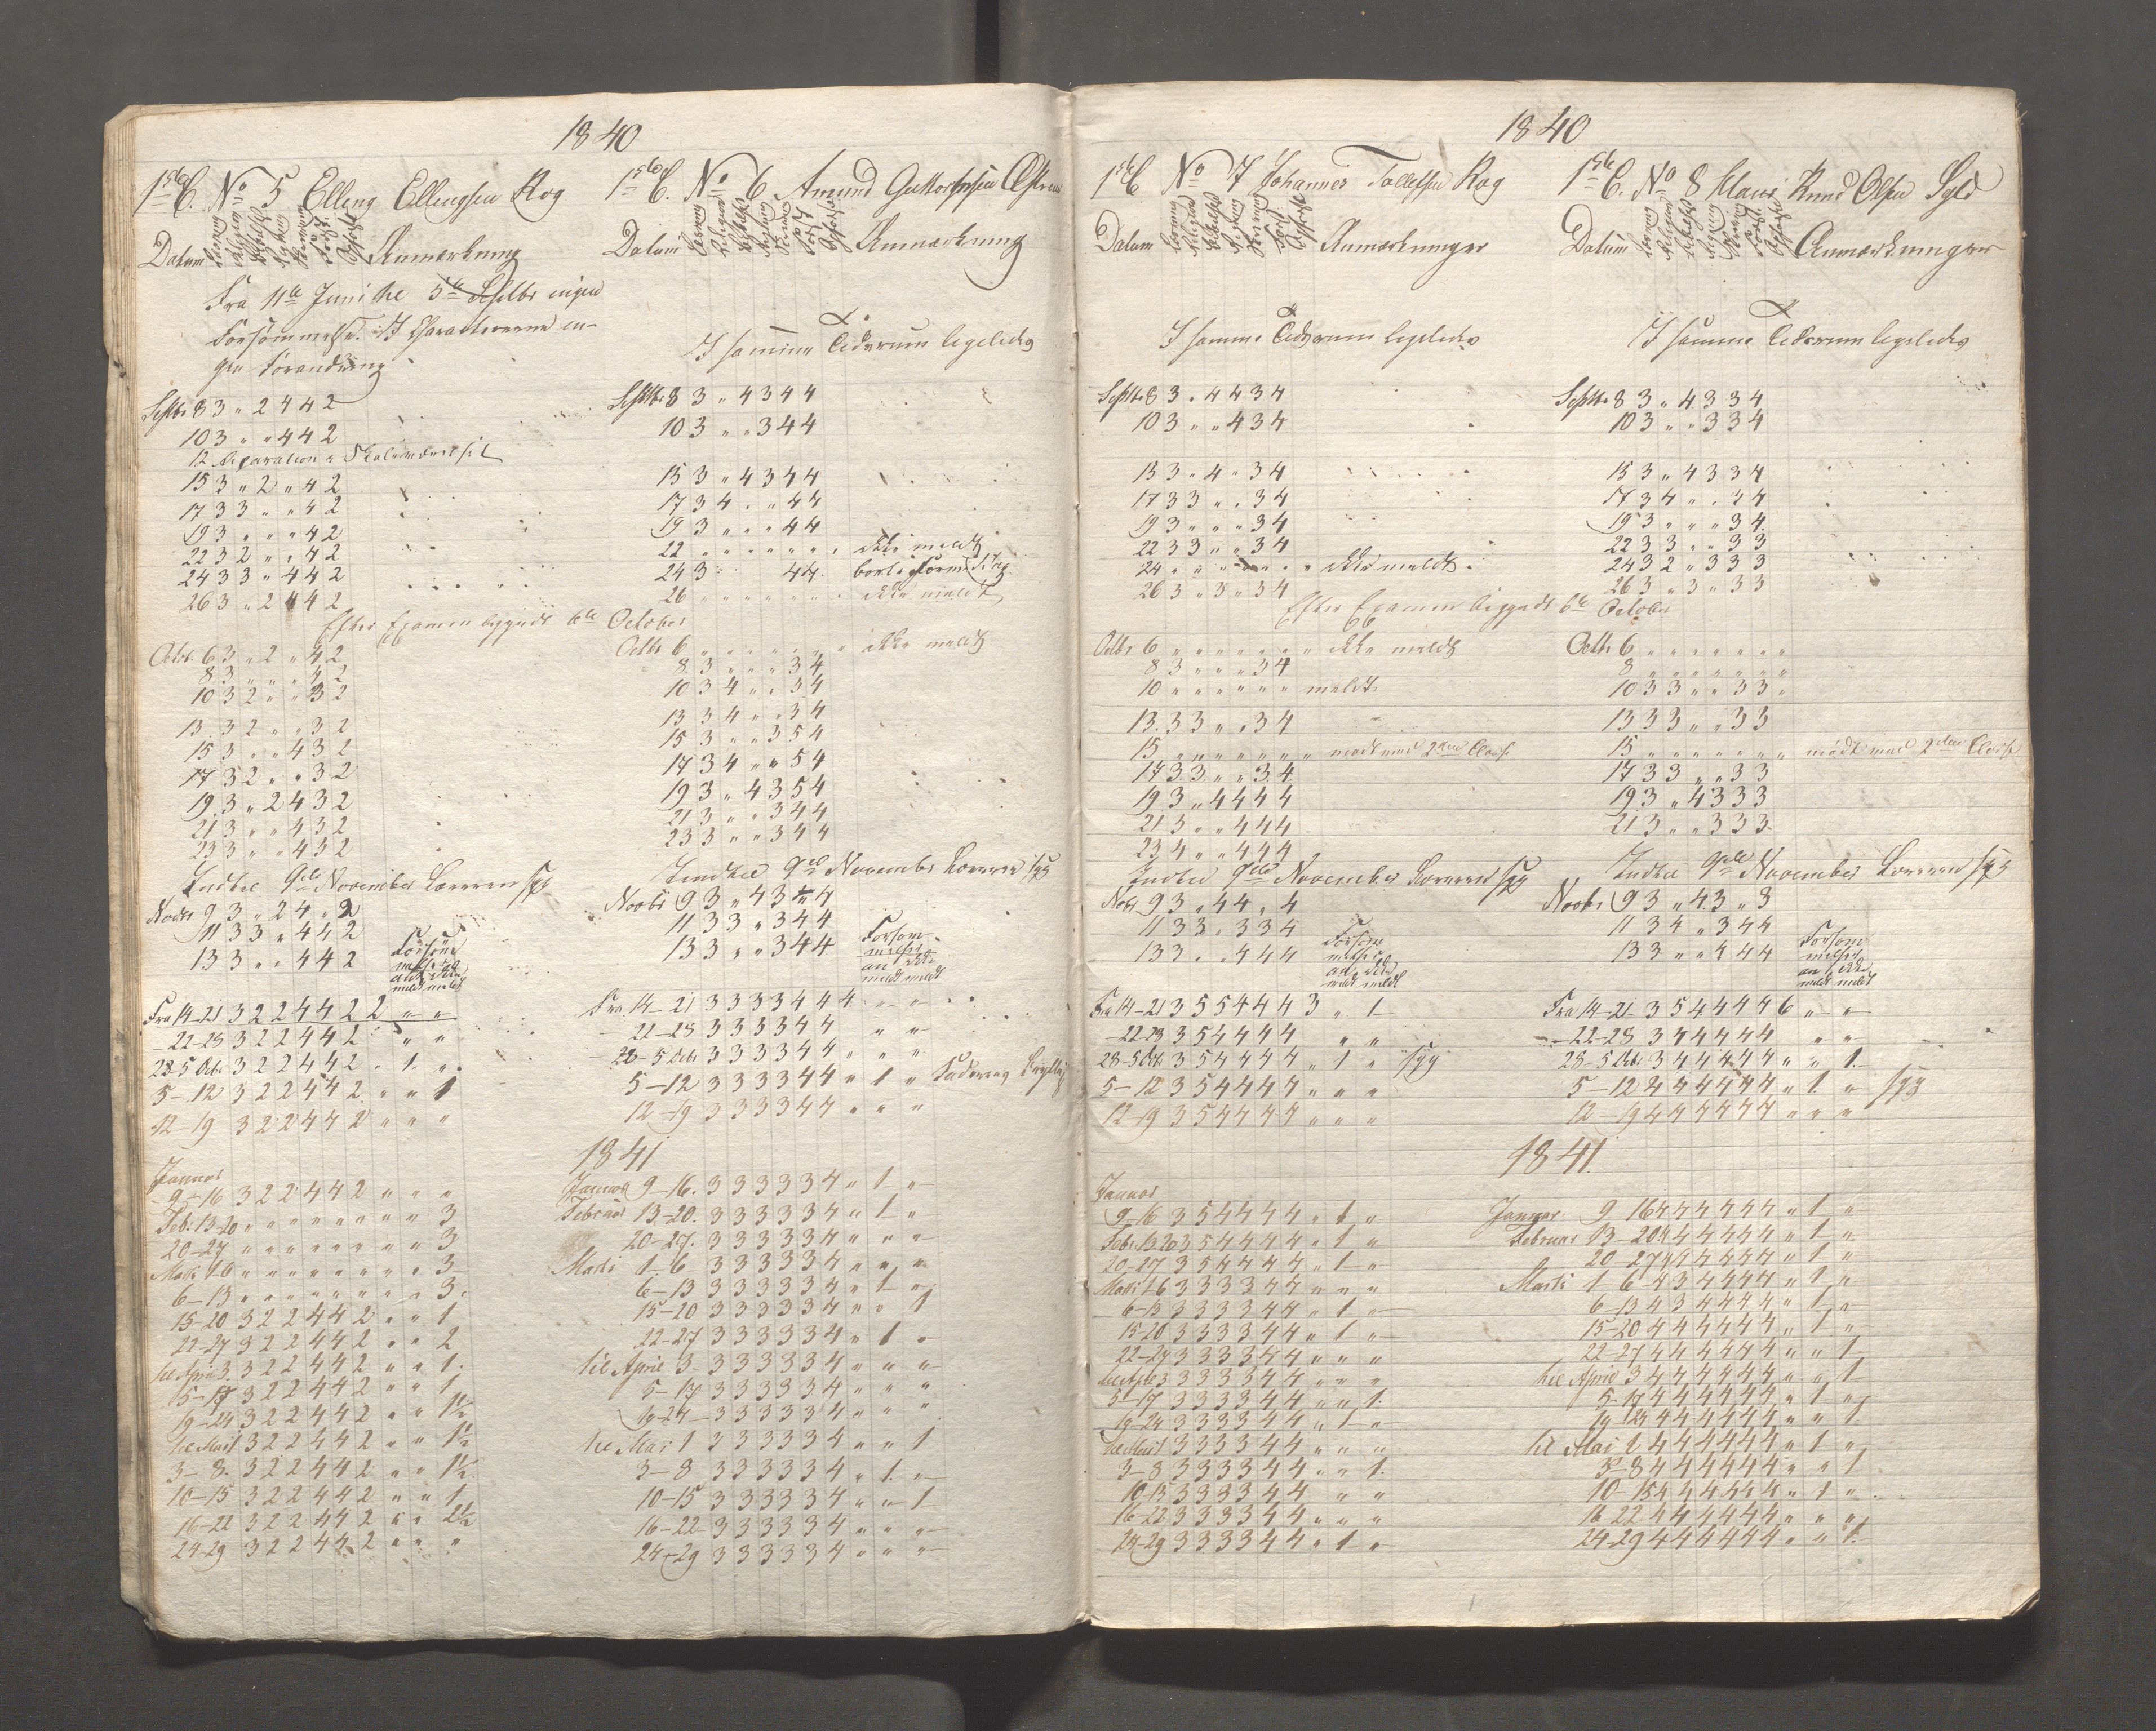 1840
1ste C. No 5 Elling Ellingsen Rog
Datum Læsning Religion Skrivning Regning Sang Anmærkning
Fra 11te Juni til 5te Septbr ingen
Forsömmelse. I Charactererne in-
gen Forandring
Septbr 8 3 „ 2 4 4 2
10 3 „ „ 4 4 2
12 Reparation i Skoleværelset
15 3 „ 2 „ 4 2
17 3 3 „ „ 4 2
19 3 „ „ „ 4 2
22 3 2 „ „ 4 2
24 3 3 „ 4 4 2
26 3 „ 2 4 4 2
Efter Examen begyndt 6te October
Octob. 6 3 „ 2 „ 4 2
8 3 „ „ „ 4 2
10 3 2 „ „ 3 2
13 3 2 „ „ 3 2
15 3 „ „ 4 3 2
17 3 2 „ „ 3 2
19 3 „ 2 4 3 2
21 3 „ „ 4 3 2
23 3 „ „ 4 3 2
Indtil 9de November Læreren syg
Novbr 9 3 „ 2 4 „ 2
11 3 3 „ 4 4 2
13 3 „ „ 4 4 2 Forsömmelse
an ikke
meldt meldt
Fra 14-21 3 2 2 4 4 2 2 „ „
22-28 3 2 2 4 4 2 „ „
28-5 Dcbr 3 2 2 4 4 2 „ 1 „
5-12 3 2 2 4 4 2 „ „ 1
12-19 3 2 2 4 4 2 „ „ „
Januar
9-16 3 2 2 4 4 2 „ „ „
Feb. 13-20 „ „ „ „ „ „ „ „ 3
20-27 „ „ „ „ „ „ „ „ 3
Marts 1-6 „ „ „ „ „ „ „ „ 3
6-13 „ „ „ „ „ „ „ „ 3
15-20 3 2 2 4 4 2 „ „ 1
22-27 3 2 2 4 4 2 „ „ 2
til April 3 3 2 2 4 4 2 „ „ 1
5-17 3 2 2 4 4 2 „ „ 1
19-24 3 2 2 4 4 2 „ „ 1½
til Mai 1 3 2 2 4 4 2 „ „ 1½
3-8 3 2 2 4 4 2 „ „ 1½
10-15 3 2 2 4 4 2 „ „ 1
16-22 3 2 2 4 4 2 „ „ 2½
24-29 3 2 2 4 4 2 „ „ „
1ste C. No 6 Amund Guttormsen
Datum Anmærkning
I samme Tidsrum ligeledes
Septbr 8 3 „ 4 3 4 4
10 3 „ „ 3 4 4
15 3 „ 4 3 4 4
17 3 4 „ „ 4 4
19 3 „ „ „ 4 4
22 „ „ „ „ „ „ ikke meldt
24 3 „ 4 4
26 „ „ „ „ „ „ ikke meldt
Octbr 6 „ „ „ „ „ „ „ ikke meldt
8 3 „ „ „ 3 4
10 3 4 „ „ 3 4
13 3 4 „ „ 3 4
15 3 „ „ 3 5 4
17 3 4 „ „ 5 4
19 3 „ 4 3 5 4
21 3 „ „ 3 4 4
23 3 „ „ 3 4 4
Indtil 9de November Læreren syg
Novbr 9 3 „ 4 3 „ 4
11 3 3 „ 3 4 4
13 3 „ „ 3 4 4 Forsom-
melser
an ikke
meldt meldt
Fra 14-21 3 3 3 3 4 4 4 „ „
22-28 3 3 3 3 4 4 „ „
28-5 Dcbr 3 3 3 3 4 4 „ „ „
5-12 3 3 3 3 4 4 „ 1 „
12-19 3 3 3 3 4 4 „ „ „
1841
Januar 9-16. 3 3 3 3 3 4 „ 1 „
Februar 13-20. 3 3 3 3 3 4 „ 1 „
20-27. 3 3 3 3 3 4 „ „ „
Marts 1-6 3 3 3 3 3 4 „ „ „
6-13 3 3 3 3 3 4 „ 1 „
15-20 3 3 3 3 3 4 „ „ 1
22-27 3 3 3 3 3 4 „ 1 „
til April 3 3 3 3 3 3 4 „ „ „
5-17 3 3 3 3 3 4 „ „ „
19-24 3 3 3 3 3 4 „ „ „
til Mai 1 3 3 3 3 3 4 „ „ 1
3-8 3 3 3 3 3 4 „ 1 „
10-15 3 3 3 3 3 4 „ „ 1
16-22 3 3 3 3 3 4 „ „ „
24-29 3 3 3 3 3 4 „ „ „
1840
1ste C No 7 Johannes Tollefsen Rog
Datum Anmærkninger
I samme Tidsrum ligeledes
Septbr 8 3 „ 4 4 3 4
10 3 „ „ 4 3 4
15 3 „ 4 „ 3 4
17 3 3 „ „ 3 4
19 3 „ „ „ 3 4
22 3 3 „ „ 3 4
24 „ „ „ „ „ „ ikke meldt
26 3 „ 3 „ 3 4
Efter Examen begyndt 6te October
Octbr 6 „ „ „ „ „ „ „ ikke meldt
8 3 „ „ „ 3 4
10 „ „ „ „ „ „ meldt
13 3 3 „ „ 3 4
15 „ „ „ „ „ „ „ mödt med 2den Classe
17 3 3 „ „ 3 4
19 3 „ 4 4 4 4
21 3 „ „ 4 4 4
23 4 „ „ 4 4 4
Indtil 9de November Læreren syg
Novbr 9 3 „ 4 4 „ 4
11 3 3 „ 3 3 4
13 3 „ „ 4 4 4 Forsom
melser
an ikke
meldt meldt
Fra 14-21 3 5 5 4 4 4 3 „ 1
22-28 3 5 4 4 4 4 „ „
28-5 Dcbr 3 5 4 4 4 4 „ 1 „ syg
5-12 3 5 4 4 4 4 „ „ „
12-19 3 5 4 4 4 4 „ „ „
Januar
9-16 3 5 4 4 4 4 „ 1 „
Febr. 13-20 3 5 4 4 4 4 „ 1 „
20-27 3 5 4 4 4 4 „ 1 „
Marts 1-6 3 3 3 3 4 4 „ „ „
6-13 3 3 3 3 4 4 „ 1 „
15-20 3 3 3 3 4 4 „ 1 „
22-27 3 3 3 3 4 4 „ „ „
til April 3 3 3 3 3 4 4 „ „ „
5-17 3 3 3 3 4 4 „ „ 1
19-24 3 3 3 3 4 4 „ 1 „
til Mai 1 3 3 3 3 4 4 „ „ „
3-8 3 3 3 3 4 4 „ „ 1
10-15 3 3 3 3 4 4 „ „
16-22 3 3 3 3 4 4 „ „ „
24-29 3 3 3 3 4 4 „ 1 „
1ste C. No 8 Claus Knud Olsen Syld
Datum Anmærkninger
I samme Tidsrum ligeledes
Septbr 8 3 „ 4 3 3 4
10 3 „ „ 3 3 4
15 3 „ 4 3 3 4
17 3 4 „ „ 3 4
19 3 „ „ „ 3 4
22 3 3 „ „ 3 3
24 3 2 „ 3 3 3
26 3 „ 3 „ 3 3
Octbr 6 „ „ „ „ „ „ „
8 „ „ „ „ „ „ „
10 3 3 „ „ 3 3 „
13 3 3 „ „ 3 3
15 „ „ „ „ „ „ „ mödt med 2den Classe
17 3 3 „ „ 3 3
19 3 „ 4 3 3 3
21 3 „ „ 3 3 3
Indtil 9de November Læreren syg
Novbr 9 3 „ 4 3 „ 3
11 3 4 „ 3 4 4
13 3 „ „ 4 4 4 Forsom
melser
an ikke
meldt meldt
Fra 14-21 3 5 4 4 4 4 6 „ „
22-28 3 4 4 4 4 4 „ „
28-5 Dcbr 3 4 4 4 4 4 „ „ 1
5-12 4 4 4 4 4 4 „ 1 „ syg
12-19 4 4 4 4 4 4 „ „ „
1841
Januar 9-16 4 4 4 4 4 4 „ 1 „
Februar 13-20 4 4 4 4 4 4 „ 1 „
20-27 4 4 4 4 4 4 „ 1 „
Marts 1-6 4 3 4 4 4 4 „ 1 „
6-13 4 3 4 4 4 4 „ 1 „
15-20 4 4 4 4 4 4 „ 1 „
22-27 4 4 4 4 4 4 „ „ 1
til April 3 4 4 4 4 4 4 „ „ 1
5-17 4 4 4 4 4 4 „ 1 „
19-24 4 4 4 4 4 4 „ „ 1
til Mai 1 4 4 4 4 4 4 „ 1 „
3-8 4 4 4 4 4 4 „ „ 1
10-15 4 4 4 4 4 4 „ 1 „
16-22 4 4 4 4 4 4 „ „ „
24-29 4 4 4 4 4 4 „ „ 1